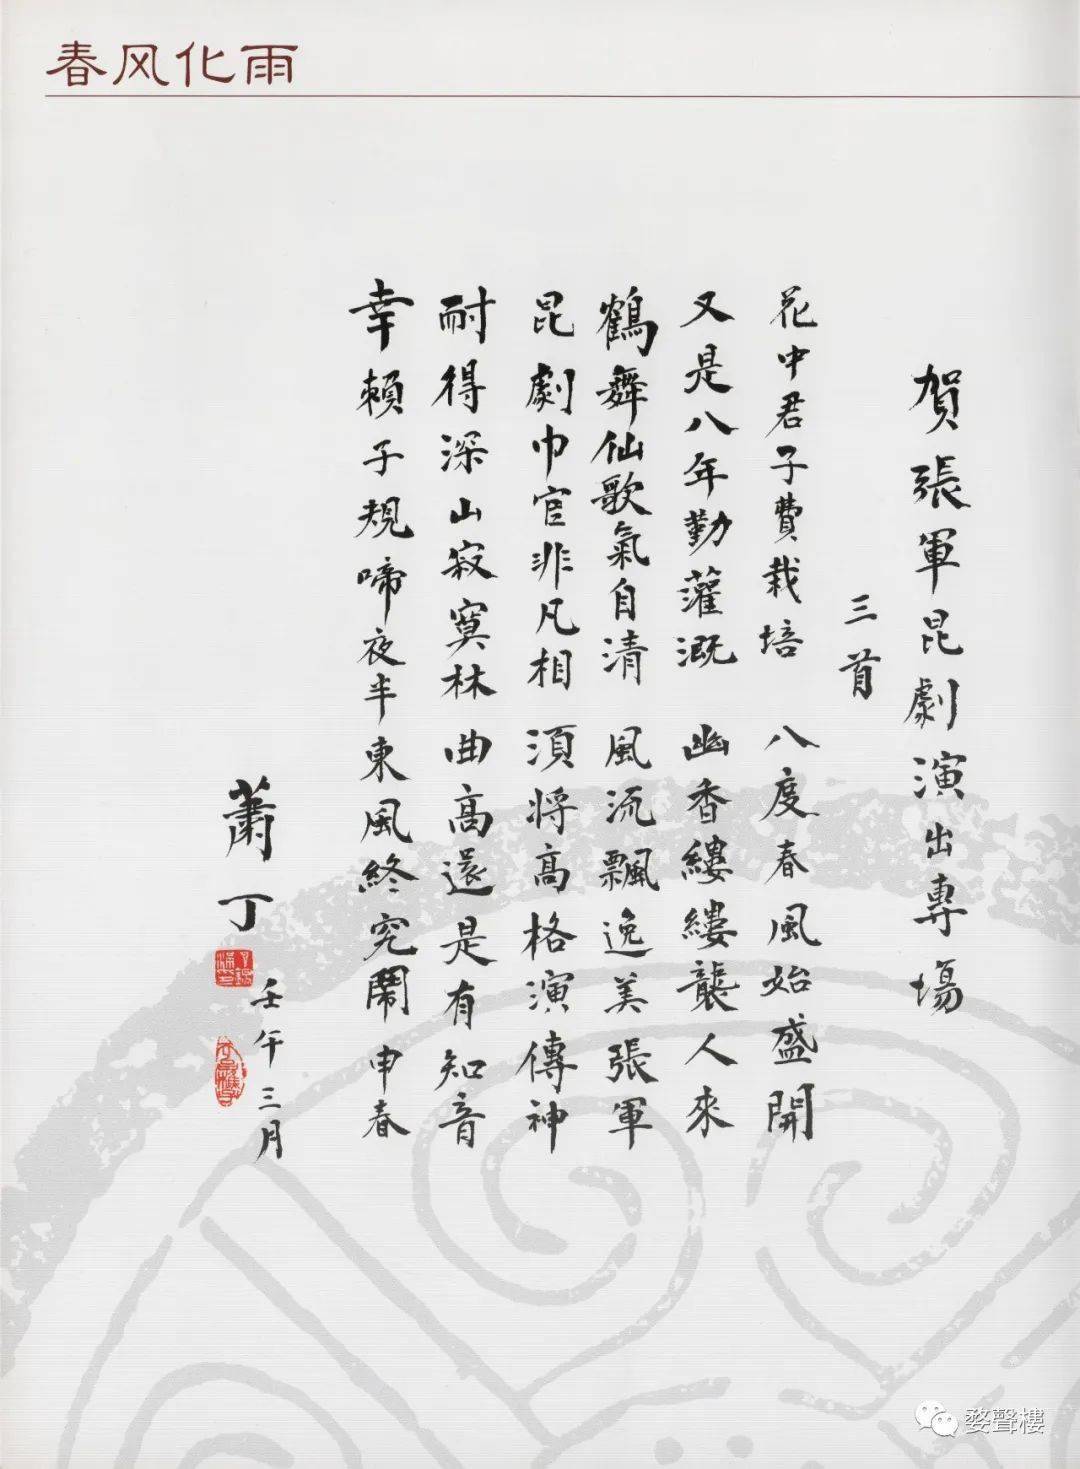 春风化雨
賀張軍昆劇演出專場
三首
花中君子費栽培 八度春風始盛開
又是八年勤灌溉 幽香縷縷襲人來
鶴舞仙歌氣自清 風流飄逸美張軍
昆劇巾官非凡相 須將高格演傳神
耐得深山寂寞林 曲高還是有知音
幸賴子規啼夜半 東風終究鬧申春
蕭丁
壬午三月
婺聲樓